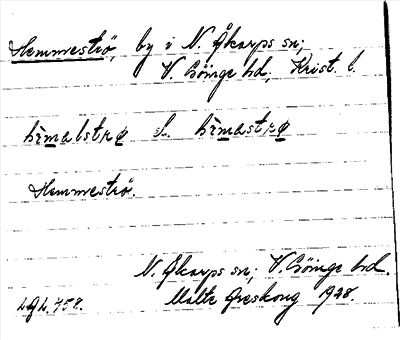 Hemmeströ, by i N. Åkarps sn;
V. Göinge hd; Krist. l.
hèmalstrø l. hèmastrø
Hemmeströ.
N. Åkarps sn; V. Göinge hd.
Malte Areskoug 1928.